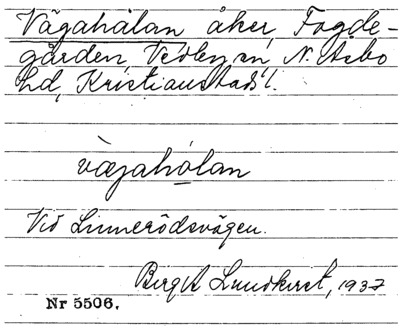 Vägahålan åker, Fogde-
gården, Vedby sn, N. Åsbo
hd, Kristianstads l.
vægahòlan
Vid Linnerödsvägen.
Birgit Lundkvist, 1937
Nr 5506.